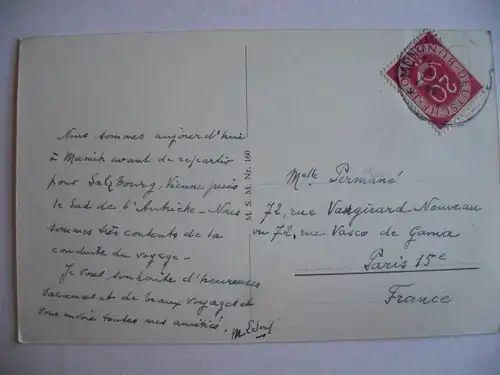 Nous sommes aujourd'hui
à Munich avant de repartir
pour Salzbourg, Vienne puis
le Sud de l'Autriche - Nous
sommes très contents de la
conduite du voyage -
Je vous souhaite d'heureuses
vacances et de beaux voyages et
vous envoie toutes mes amitiés.
M. S. M. Nr. 160
DEUTSCHE BUNDESPOST
20
Melle Permané
72, rue Vaugirard-Nouveau
ou 72, rue Vasco de Gama
Paris 15e
France